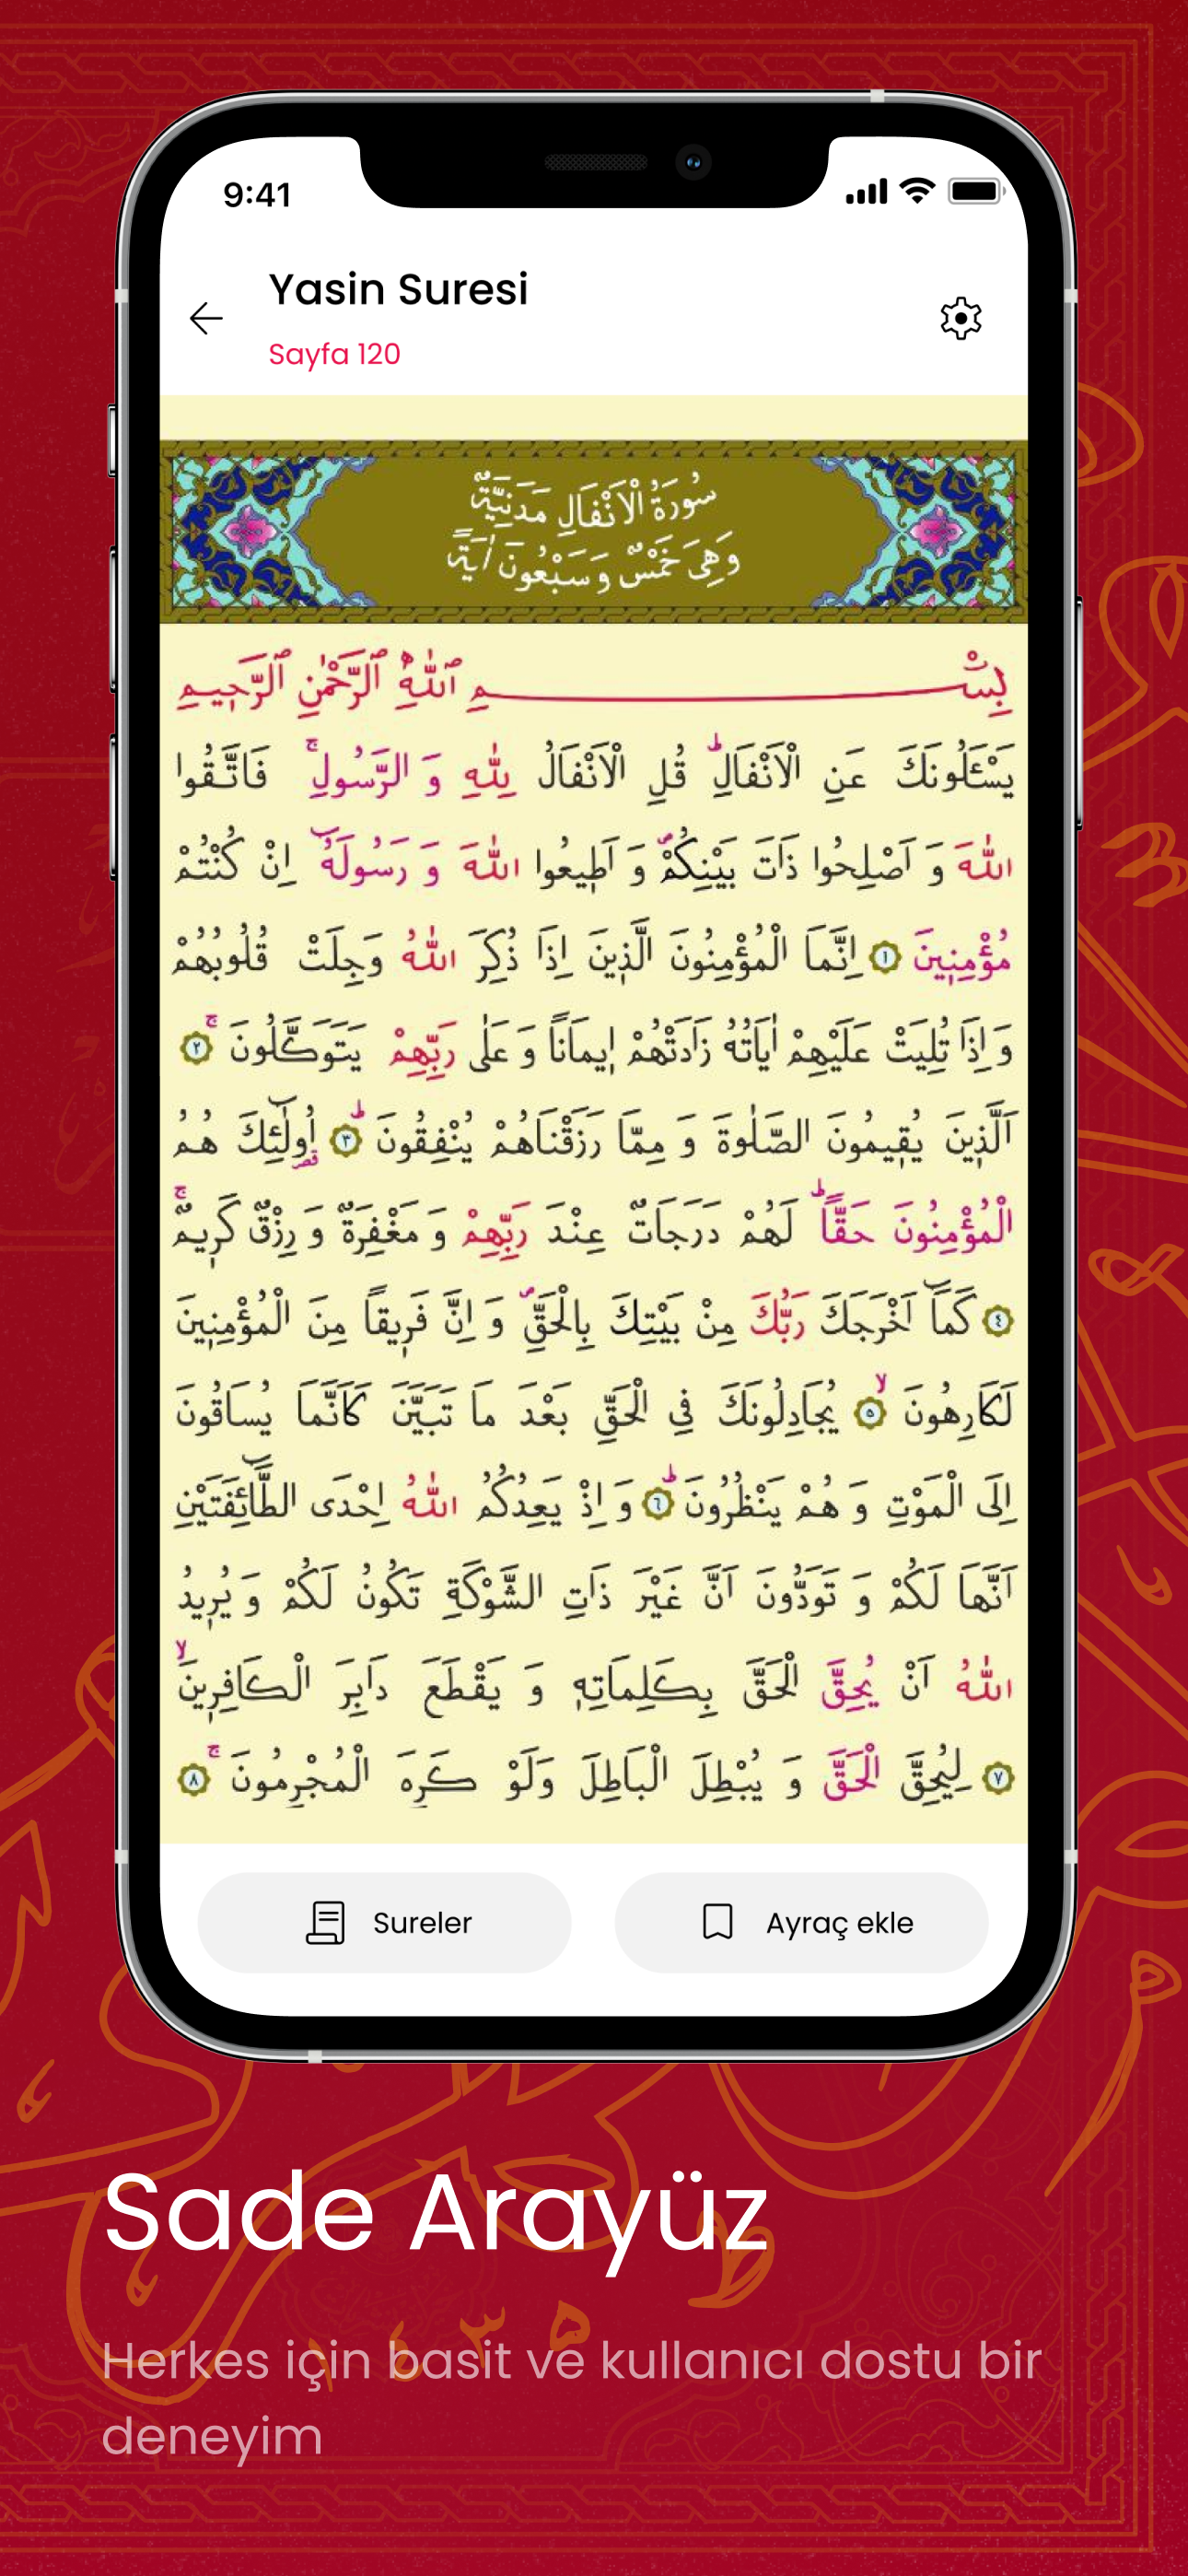 9:41
Yasin Suresi
Sayfa 120
سُورَةُ الْاَنْفَالِ مَدَنِيَّةٌ
وَهِيَ خَمْسٌ وَسَبْعُونَ اٰيَةً
بِسْمِ ٱللّٰهِ ٱلرَّحْمٰنِ ٱلرَّحِيمِ
يَسْـَٔلُونَكَ عَنِ الْاَنْفَالِۜ قُلِ الْاَنْفَالُ لِلّٰهِ وَ الرَّسُولِۚ فَاتَّقُوا
اللّٰهَ وَ اَصْلِحُوا ذَاتَ بَيْنِكُمْۖ وَ اَط۪يعُوا اللّٰهَ وَ رَسُولَهُٓ اِنْ كُنْتُمْ
مُؤْمِن۪ينَ ١ اِنَّمَا الْمُؤْمِنُونَ الَّذ۪ينَ اِذَا ذُكِرَ اللّٰهُ وَجِلَتْ قُلُوبُهُمْ
وَ اِذَا تُلِيَتْ عَلَيْهِمْ اٰيَاتُهُ زَادَتْهُمْ ا۪يمَانًا وَ عَلٰى رَبِّهِمْ يَتَوَكَّلُونَۚ ٢
اَلَّذ۪ينَ يُق۪يمُونَ الصَّلٰوةَ وَ مِمَّا رَزَقْنَاهُمْ يُنْفِقُونَۜ ٣ اُو۬لٰٓئِكَ هُمُ
الْمُؤْمِنُونَ حَقًّاۜ لَهُمْ دَرَجَاتٌ عِنْدَ رَبِّهِمْ وَ مَغْفِرَةٌ وَ رِزْقٌ كَر۪يمٌۚ
٤ كَمَٓا اَخْرَجَكَ رَبُّكَ مِنْ بَيْتِكَ بِالْحَقِّۖ وَ اِنَّ فَر۪يقًا مِنَ الْمُؤْمِن۪ينَ
لَكَارِهُونَۙ ٥ يُجَادِلُونَكَ فِي الْحَقِّ بَعْدَ مَا تَبَيَّنَ كَاَنَّمَا يُسَاقُونَ
اِلَى الْمَوْتِ وَ هُمْ يَنْظُرُونَۜ ٦ وَ اِذْ يَعِدُكُمُ اللّٰهُ اِحْدَى الطَّٓائِفَتَيْنِ
اَنَّهَا لَكُمْ وَ تَوَدُّونَ اَنَّ غَيْرَ ذَاتِ الشَّوْكَةِ تَكُونُ لَكُمْ وَ يُر۪يدُ
اللّٰهُ اَنْ يُحِقَّ الْحَقَّ بِكَلِمَاتِه۪ وَ يَقْطَعَ دَابِرَ الْكَافِر۪ينَۙ
٧ لِيُحِقَّ الْحَقَّ وَ يُبْطِلَ الْبَاطِلَ وَلَوْ كَرِهَ الْمُجْرِمُونَۚ ٨
Sureler
Ayraç ekle
Sade Arayüz
Herkes için basit ve kullanıcı dostu bir
deneyim